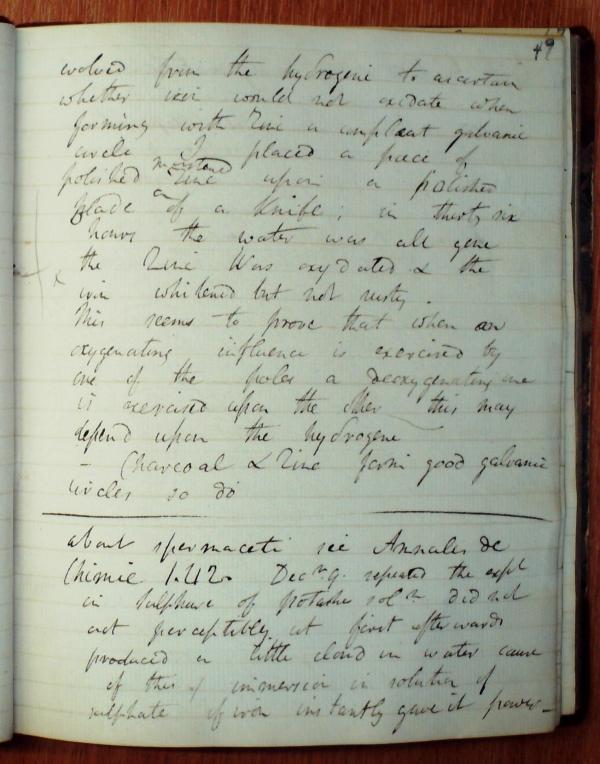 49
evolved from the hydrogene to ascertain
whether iron would not oxidate when
forming with Zinc a compleat galvanic
circle I placed a piece of
polished moistened Zinc upon a polished
blade of a Knife; in thirty six
hours the water was all gone
the Zinc Was oxydated & the
iron whitened but not rusty.
This seems to prove that when an
oxygenating influence is exercised by
one of the poles a deoxygenating one
is exercised upon the other this may
depend upon the hydrogene
- Charcoal & Zinc form good galvanic
circles so do
about spermaceti see Annales de
Chimie Decr. 9. repeated the expt
in sulphure of potash soln did not
act perceptibly at first afterwards
produced a little cloud in water cause
of this immersion in solution of
sulphate of iron instantly gave it power -